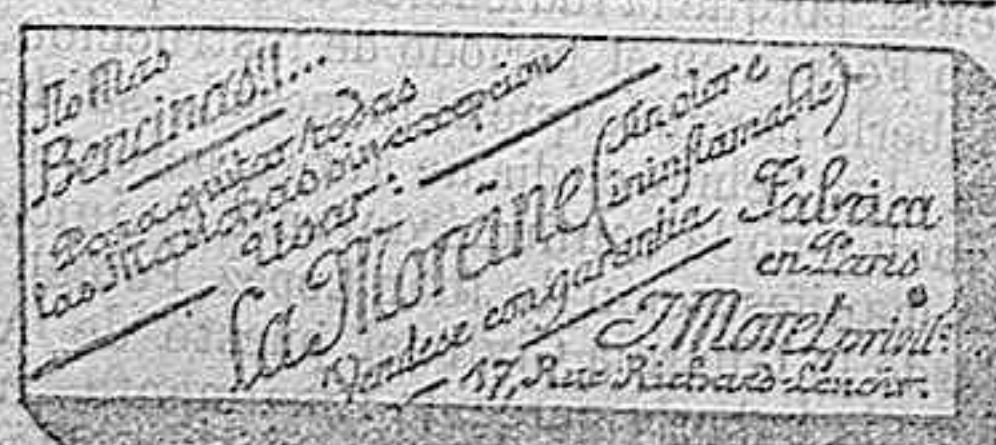 No Mas
Bencinas!!...
Para quitar todas
las Manchas sin excepcion
Usar:
La Moreine (sin olor é
ininflamable)
Vendese con garantia
Fabrica
en Paris
J. Morel privil.
17, Rue Richard-Lenoir.